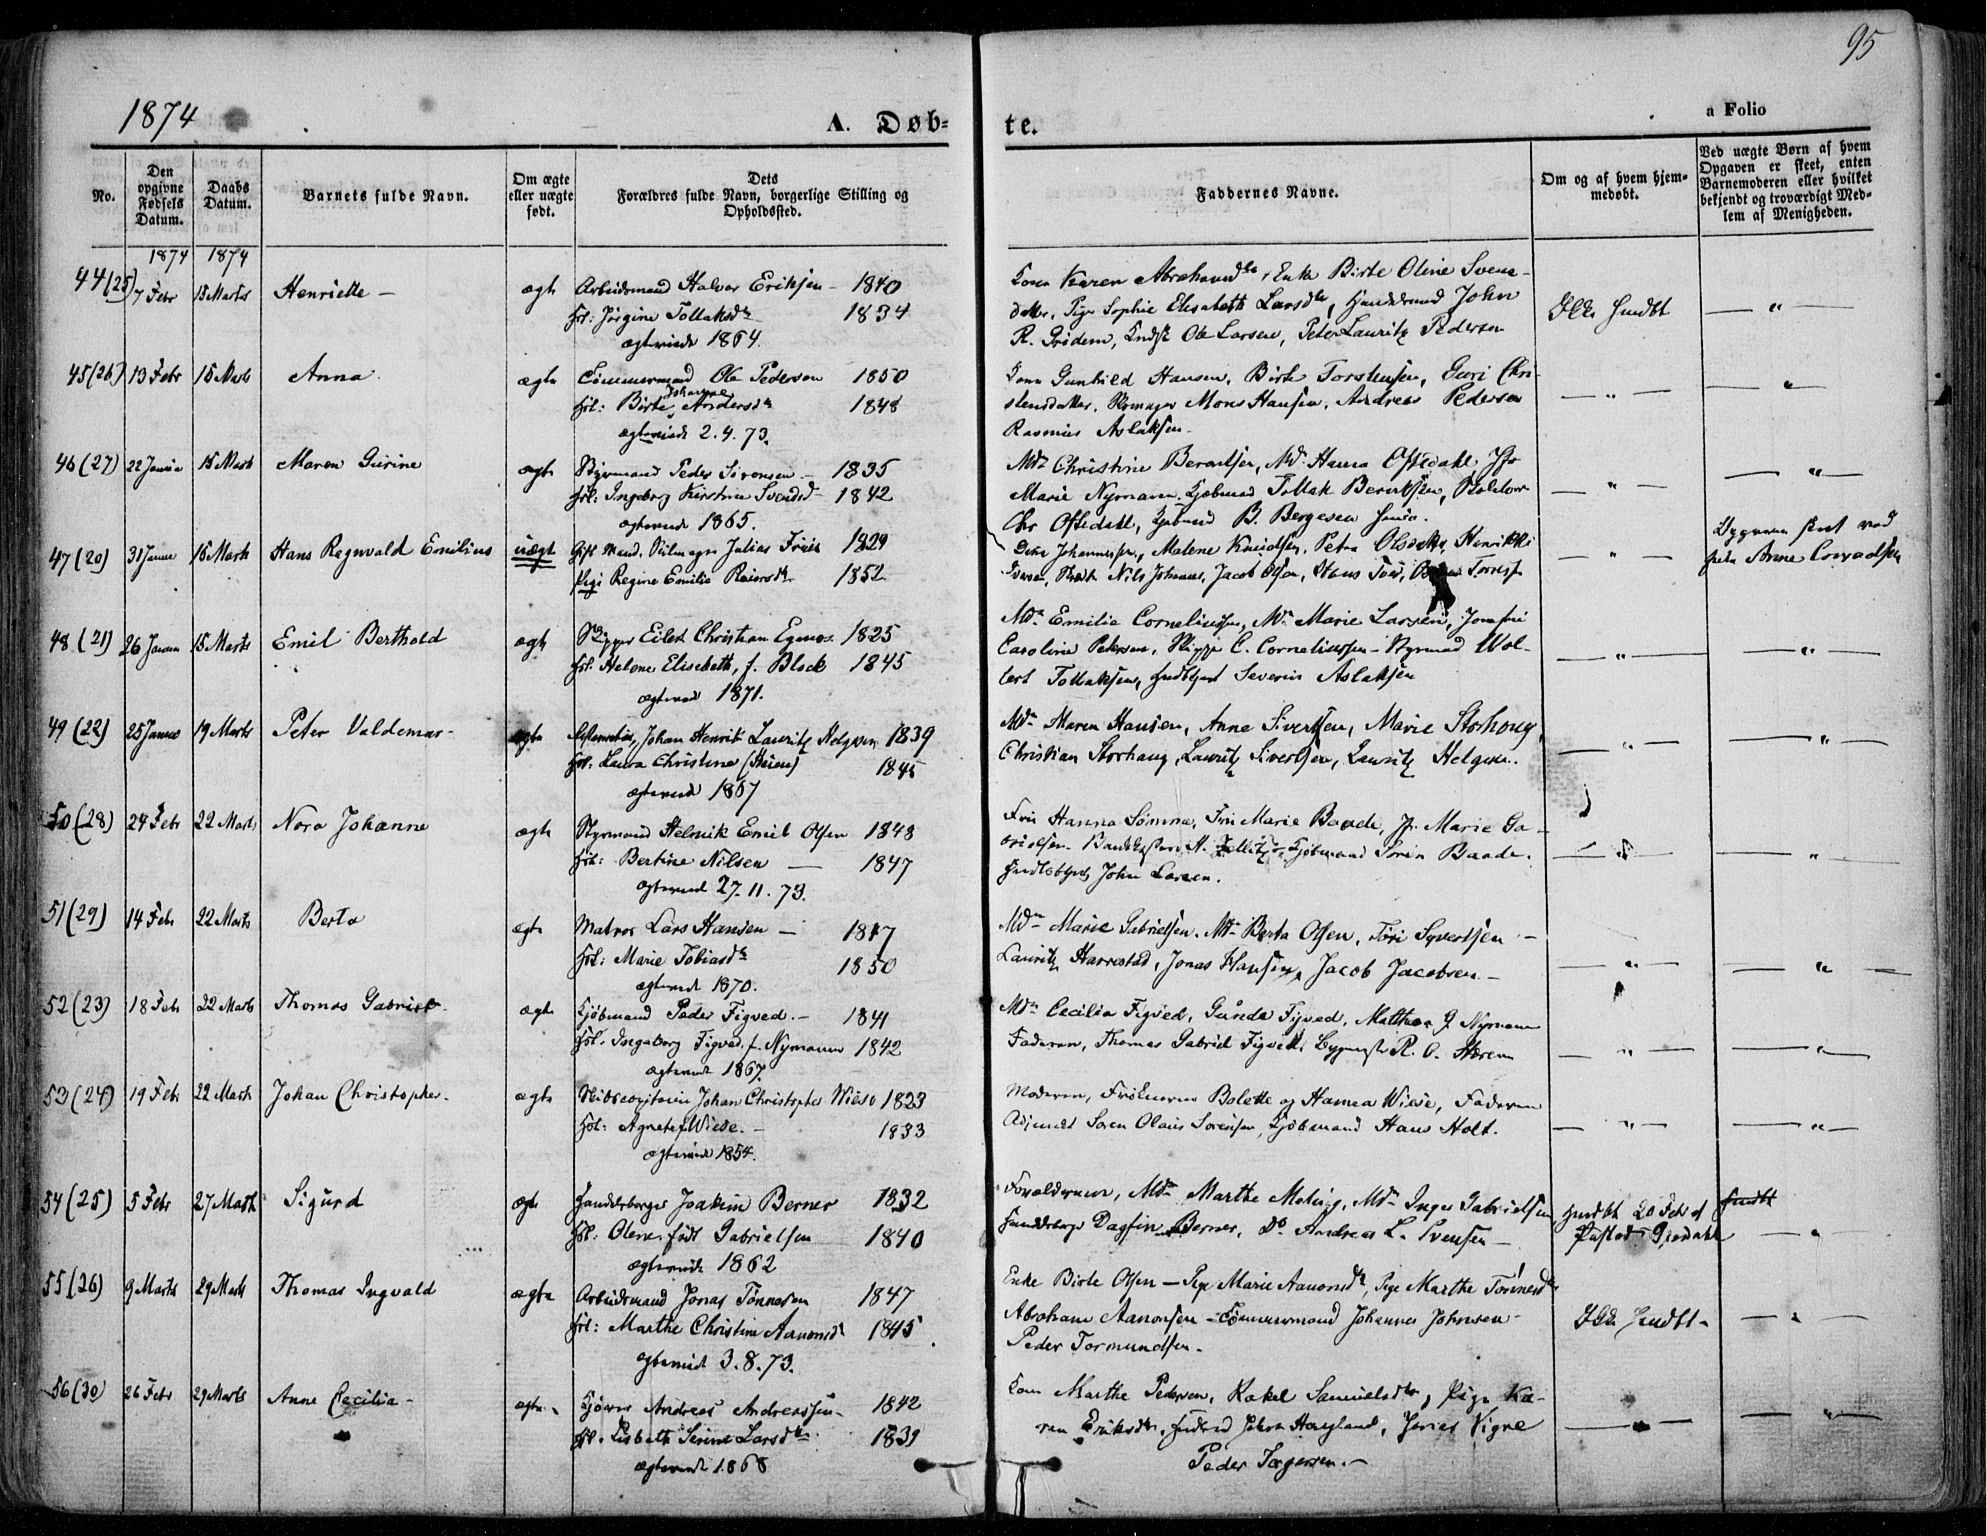 95
1874
A. Døb-
te.
a Folio
No.
Den opgivne Fødsels Datum.
Daabs Datum.
Barnets fulde Navn.
Om ægte eller uægte født.
Dets Forældres fulde Navn, borgerlige Stilling og Opholdssted.
Faddernes Navne.
Om og af hvem hjemmedøbt.
Ved uægte Børn af hvem Opgaven er skeet, enten Barnemoderen eller hvilket bekjendt og troværdigt Medlem af Menigheden.
1874 1874
44 (25) 7 Febr 15 Marts Henriette — ægte Arbeidsmand Halvor Eriksen — 1840
Hst: Jørgine Tollaksdtr 1834
ægteviede 1864.
Kone Karen Abrahamsdtr, Enke Birte Oline Svens-
datter, Pige Sophie Elisabeth Larsdtr, John
R. Ole Larsen, Peter Lauritz Pedersen
Ikke hmdbt — " —
45 (26) 13 Febr 15 Marts Anna ægte Tømmermand Ole Pedersen 1850
Hst: Birte Johanne Andersdtr 1848
ægteviede 2.4.73.
Kone Gunhild Hansen, Birte Torstensen, Guri Chri-
stensdatter, Skomager Mons Hansen, Andreas Pedersen
Rasmus Aslaksen
— " — — " —
46 (27) 22 Januar 15 Marts Maren Gurine ægte Styrmand Peder Sørensen — 1835
Hst: Ingeborg Kirstine Svendsd — 1842
ægteviede 1865.
Mdm Christine Berentsen, Md. Hanna Oftedahl, Jfr
Marie Nymann, Kjøbmand Tollak Berentsen,
Chr Oftedahl, Kjøbmand B. Bergesen
— " — — " —
47 (20) 31 Januar 15 Marts Hans Regnvald Emilius uægte Gift Mand, Julius Friis 1829
Pige Regine Emilie Reiersdtr 1852
Johannessen, Malene Knudsen, Petra Olsdatter, Henrikke
Iversen, Nils Johannes, Jacob Olsen, Hans
— " — Opgaven skeet ved
Anne Conradsen
48 (21) 26 Januar 15 Marts Emil Berthold ægte Skipper Eilert Christian Egenes 1825
Hst: Helene Elisabeth, f. Block 1845
ægteviede 1871.
Mdm Emilie Corneliussen, Mdm Marie Larsen, Jomfru
Caroline Petersen, Skipper C. Corneliussen — Styrmand Wol-
lert Tollaksen, Severin Aslaksen
— " — — " —
49 (22) 25 Januar 19 Marts Peter Valdemar ægte Johan Henrik Lauritz Helgesen 1839
Hst: Laura Christine (Steien) 1845
ægteviede 1867
Mdm Maren Hansen, Anne Sivertsen, Marie Storhoug,
Christian Storhaug, Lauritz Sivertsen, Lauritz Helgesen.
— " — — " —
50 (28) 24 Febr 22 Marts Nora Johanne ægte Styrmand Helmik Emil Olsen 1848
Hst: Bertine Nilsen — 1847
ægteviede 27.11.73.
Fru Hanna Sømme, Fru Marie Baade, Jfr Marie Ga-
brielsen. Kjøbmand Sørin Baade.
John Larsen.
— " — — " —
51 (29) 14 Febr 22 Marts Berta ægte Matros Lars Hansen — 1847
Hst: Marie Tobiasdtr 1850
ægteviede 1870.
Mdm Marie Gabrielsen, Mdm Berta Olsen, Tøri Syvertsen —
Lauritz Harrestad, Jonas Hansen, Jacob Jacobsen —
— " — — " —
52 (23) 18 Febr 22 Marts Thomas Gabriel ægte Kjøbmand Peder Figved. — 1841
Hst. Ingeborg Figved, f. Nymann 1842
ægteviede 1867.
Mdm Cecilia Figved, Gunda Figved, Matthea J Nymann
Faderen, Thomas Gabriel Figved, Bygmester R. O. Haven
— " — — " —
53 (24) 19 Febr 22 Marts Johan Christopher ægte Skibscapitain Johan Christopher Wiese 1823
Hst: Agnete f Wiese. — 1833
ægteviede 1854.
Moderen, Frøknerne Bolette og Hanna Wiese, Faderen
Adjunct Søren Olaus Sørensen, Kjøbmand Hans Holt.
— " — — " —
54 (25) 5 Febr 27 Marts Sigurd ægte Handelsborger Joakim Berner 1832
Hst: Olene født Gabrielsen 1840
ægteviede 1862
Forældrene, Mdm Marthe Meling, Mdm Inger Gabrielsen
Handelsborger Dagfin Berner, Do Andreas L. Svensen —
Hmdbt 20 Febr af hmdbt
Gjerdahl — " —
55 (26) 9 Marts 29 Marts Thomas Ingvald ægte Arbeidsmand Jonas Tønnesen 1847
Hst: Marthe Christine Aanonsd 1845
ægteviede 3.8.73.
Enke Birte Olsen — Pige Marie Aanonsdtr, Pige Marthe Tønnesdtr
Abraham Aanonsen — Tømmermand Johannes Johnsen —
Peder Tormundsen.
Ikke hmdbt — — " —
56 (30) 26 Febr 29 Marts Anne Cecilia — ægte Kjører Andreas Andreassen — 1842
Hst. Lisbeth Serine Larsdtr 1839
ægteviede 1868
Kone Marthe Pedersen, Rakel Samuelsdtr, Pige Ka-
ren Eriksdtr, John Hagland, Jonas Vigre
Peder Torgersen. —
— " — — " —